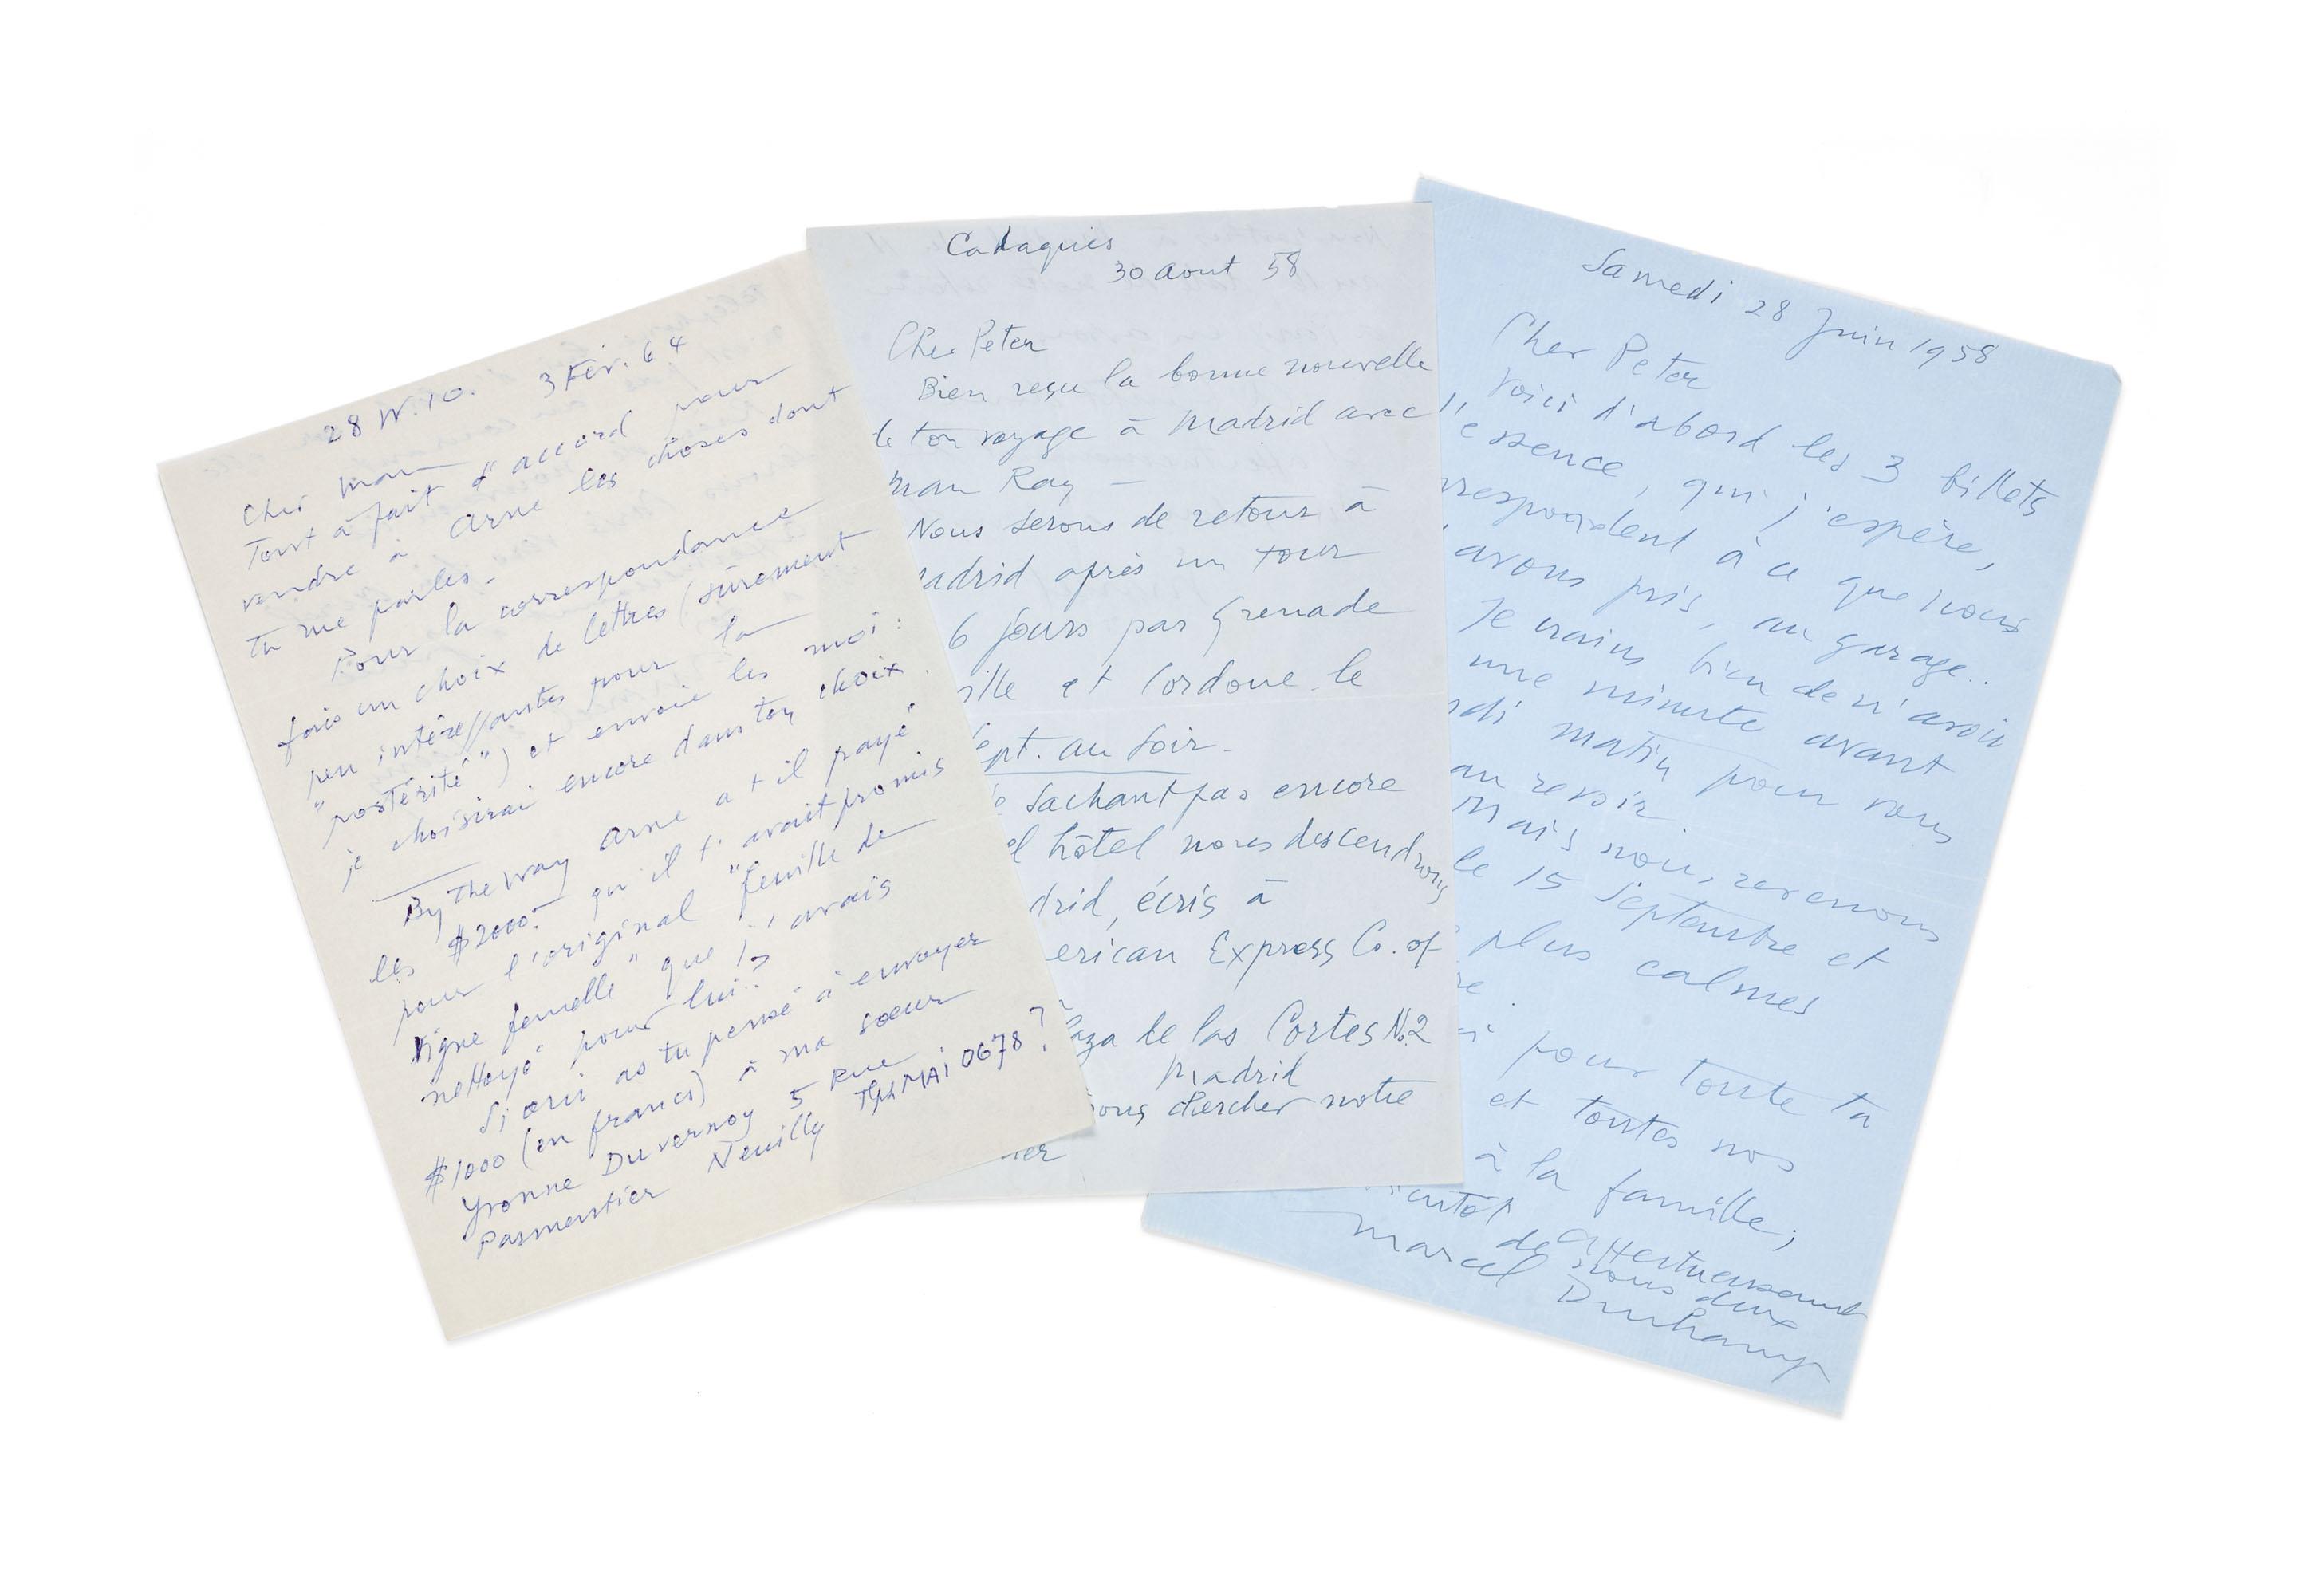 28 W. 10. 3 Fév. 64
Cher Man
Tout à fait d'accord pour
vendre à Arne les choses dont
tu me parles.
Pour la correspondance
fais un choix de lettres (sûrement
peu intéressantes pour la
"postérité") et envoie les moi:
je choisirai encore dans ton choix.
By the way Arne a t il payé
les $2000.- qu'il t'avait promis
pour l'original "feuille de
vigne femelle" que j'avais
nettoyé pour lui?
Si oui as tu pensé à envoyer
$1000 (en francs) à ma sœur
Yvonne Duvernoy 5 Rue
Parmentier Neuilly Tph MAI 0678?
Cadaquès
30 Aout 58
Cher Peter
Bien reçu la bonne nouvelle
de ton voyage à Madrid avec
Man Ray —
Nous serons de retour à
adrid après un tour
6 jours par Grenade
ille et Cordoue le
ept. au soir.
Sachant pas encore
el hôtel nous descendrons
drid, écris à
erican Express Co. of
aza de las Cortes No. 2
Madrid
ons chercher notre
ier
Samedi 28 Juin 1958
Cher Peter
Voici d'abord les 3 billets
d'essence, qui j'espère,
rrespondent à ce que nous
avons pris, au garage..
Je crains bien de n'avoir
une minute avant
rdi matin pour vous
au revoir.
Mais nous revenons
le 15 Septembre et
plus calmes
re.
i pour toute ta
et toutes nos
à la famille;
ientôt affectueusement
de nous deux
Marcel Duchamp